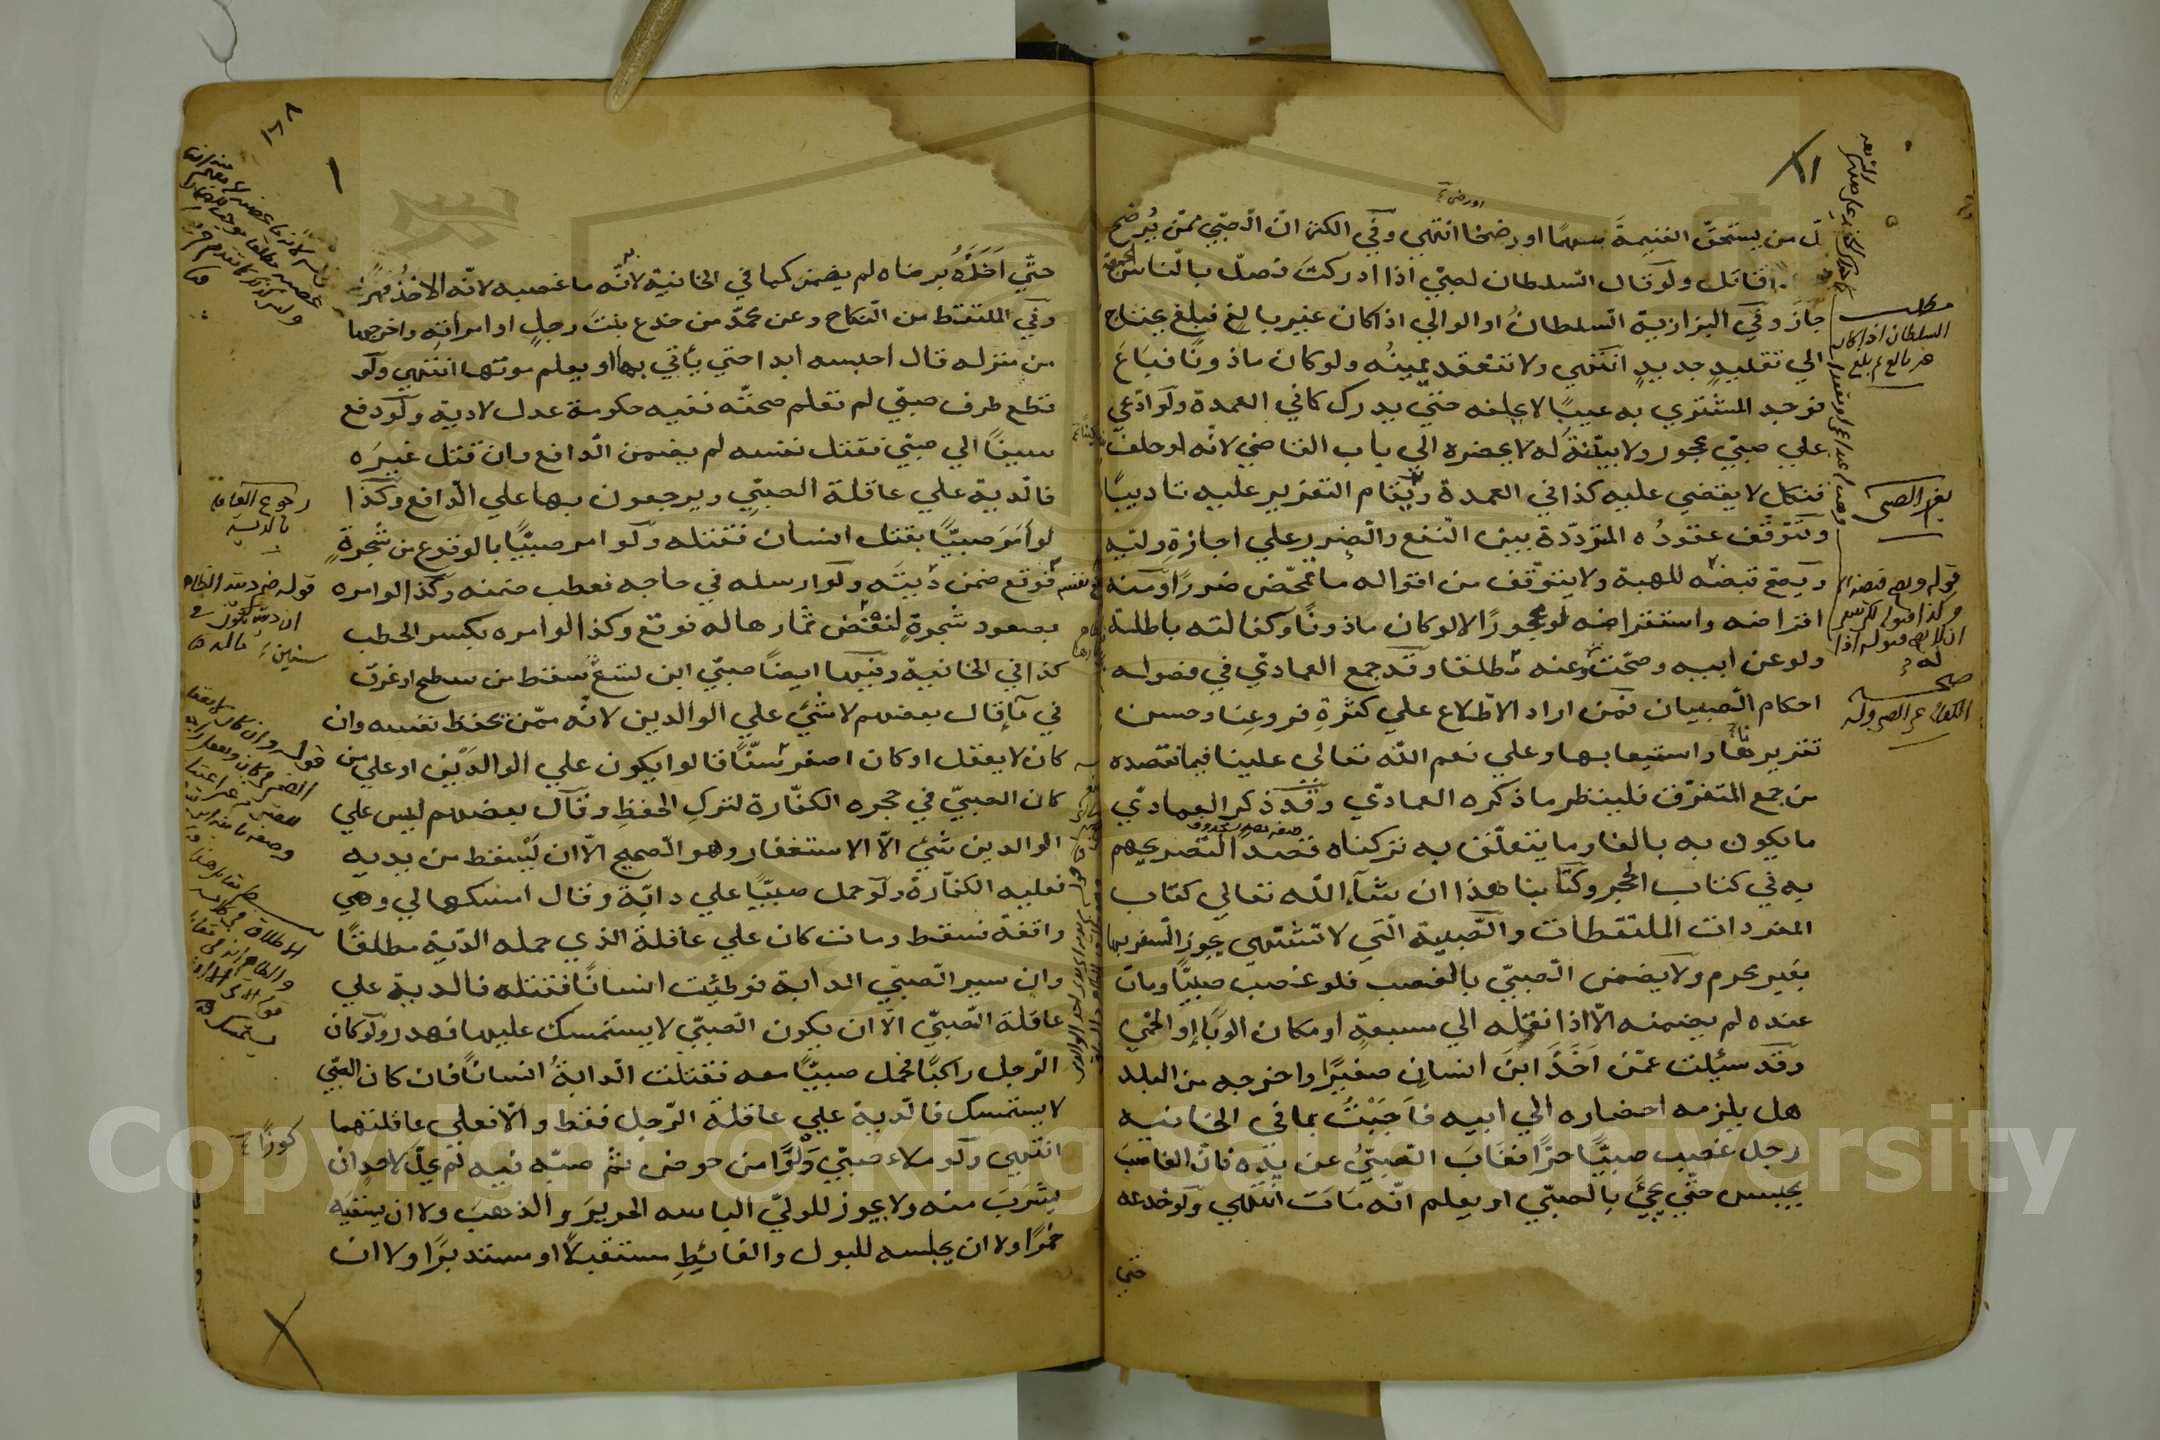 ل من يستحق الغنيمة سهما او رضخا انتهي وفي الكنز ان الصبي ممن يرضخ
قاتل ولو قال السلطان لصبي اذا ادركت فصل بالناس الجمعة
جاز وفي البزازية السلطان او الوالي اذا كان غير بالغ فبلغ يحتاج
الي تقليد جديد انتهي ولا تنعقد يمينه ولو كان ماذونا فباع
فوجد المشتري به عيبا لا يحلفه حتي يدرك كما في العمدة ولو ادعي
علي صبي محجور ولا بينة له لا يحضره الي باب القاضي لانه لو حلف
فنكل لا يقضي عليه كذا في العمدة ويقام التعزير عليه تاديبا
وتتوقف عقوده المترددة بين النفع والضرر علي اجازة وليه
ويصح قبضه للهبة ولا يتوقف من اقواله ما تمحض ضررا ومنه
اقراضه واستقراضه لو محجورا الا لو كان ماذونا وكفالته باطلة
ولو عن ابيه وصحت له وعنه مطلقا وقد جمع العمادي في فصوله
احكام الصبيان فمن اراد الاطلاع علي كثرة فروعنا وحسن
تقريرها واستيعابها وعلي نعم الله تعالي علينا فيما نقصده
من جمع المتفرق فلينظر ما ذكره العمادي وقد ذكر العمادي
ما يكون به بالغا وما يتعلق به تركناه قصدا لتصريحهم
به في كتاب الحجر وكتابنا هذا ان شآء الله تعالي كتاب
المفردات الملتقطات والصبية التي لا تشتهي يجوز السفر بها
بغير محرم ولا يضمن الصبي بالغصب فلو غصب صبيا ومات
عنده لم يضمنه الا اذا نقله الي مسبعة او مكان الوبا او الحمي
وقد سئلت عمن اخذ ابن انسان صغيرا واخرجه من البلد
هل يلزمه احضاره الي ابيه فاجبت بما في الخانيه
رجل غصب صبيا حرا فغاب الصبي عن يده فان الغاصب
يحبس حتي يجئ بالصبي او يعلم انه مات انتهي ولو خدعه
حتي
مطلب
السلطان اذا كان
غير بالغ ثم بلغ
حتي اخذه برضاه لم يضمن كما في الخانية لانه ما غصبه لانه الاخذ قهرا
وفي الملتقط من النكاح وعن محمد من خدع بنت رجل او امرأته واخرجها
من منزله قال احبسه ابدا حتي يأتي بها او يعلم موتها انتهي ولو
قطع طرف صبي لم تعلم صحته ففيه حكومة عدل لا دية ولو دفع
سيفا الي صبي فقتل نفسه لم يضمن الدافع وان قتل غيره
فالدية علي عاقلة الصبي ويرجعون بها علي الدافع وكذا
لو أمر صبيا بقتل انسان فقتله ولو امر صبيا بالوقوع من شجرة
فوقع ضمن ديته ولو ارسله في حاجه فعطب ضمنه وكذا لو امره
بصعود شجرة لنفض ثمارها له فوقع وكذا لو امره بكسر الحطب
كذا في الخانية وفيها ايضا صبي ابن تسع سقط من سطح او غرق
في مآء قال بعضهم لا شئ علي الوالدين لانه ممن يحفظ نفسه وان
كان لا يعقل او كان اصغر سنا قالوا يكون علي الوالدين او علي من
كان الصبي في حجره الكفارة لترك الحفظ وقال بعضهم ليس علي
الوالدين شئ الا الاستغفار وهو الصحيح الا ان يسقط من يديه
فعليه الكفارة ولو حمل صبيا علي دابة وقال امسكها لي وهي
واقفة فسقط ومات كان علي عاقلة الذي حمله الدية مطلقا
وان سير الصبي الدابة فوطئت انسانا فقتله فالدية علي
عاقلة الصبي الا ان يكون الصبي لا يستمسك عليها فهدر ولو كان
الرجل راكبا فحمل صبيا معه فقتلت الدابة انسانا فان كان الصبي
لا يستمسك فالدية علي عاقلة الرجل فقط والا فعلي عاقلتهما
انتهي ولو ملاء صبي كوزا من حوض ثم صبه فيه لم يحل لاحد ان
يشرب منه ولا يجوز للولي الباسه الحرير والذهب ولا ان يسقيه
خمرا ولا ان يجلسه للبول والغائط مستقبلا او مستدبرا ولا ان
رجوع العاقلة
بالدية
كوزا
Copyright © King Saud University